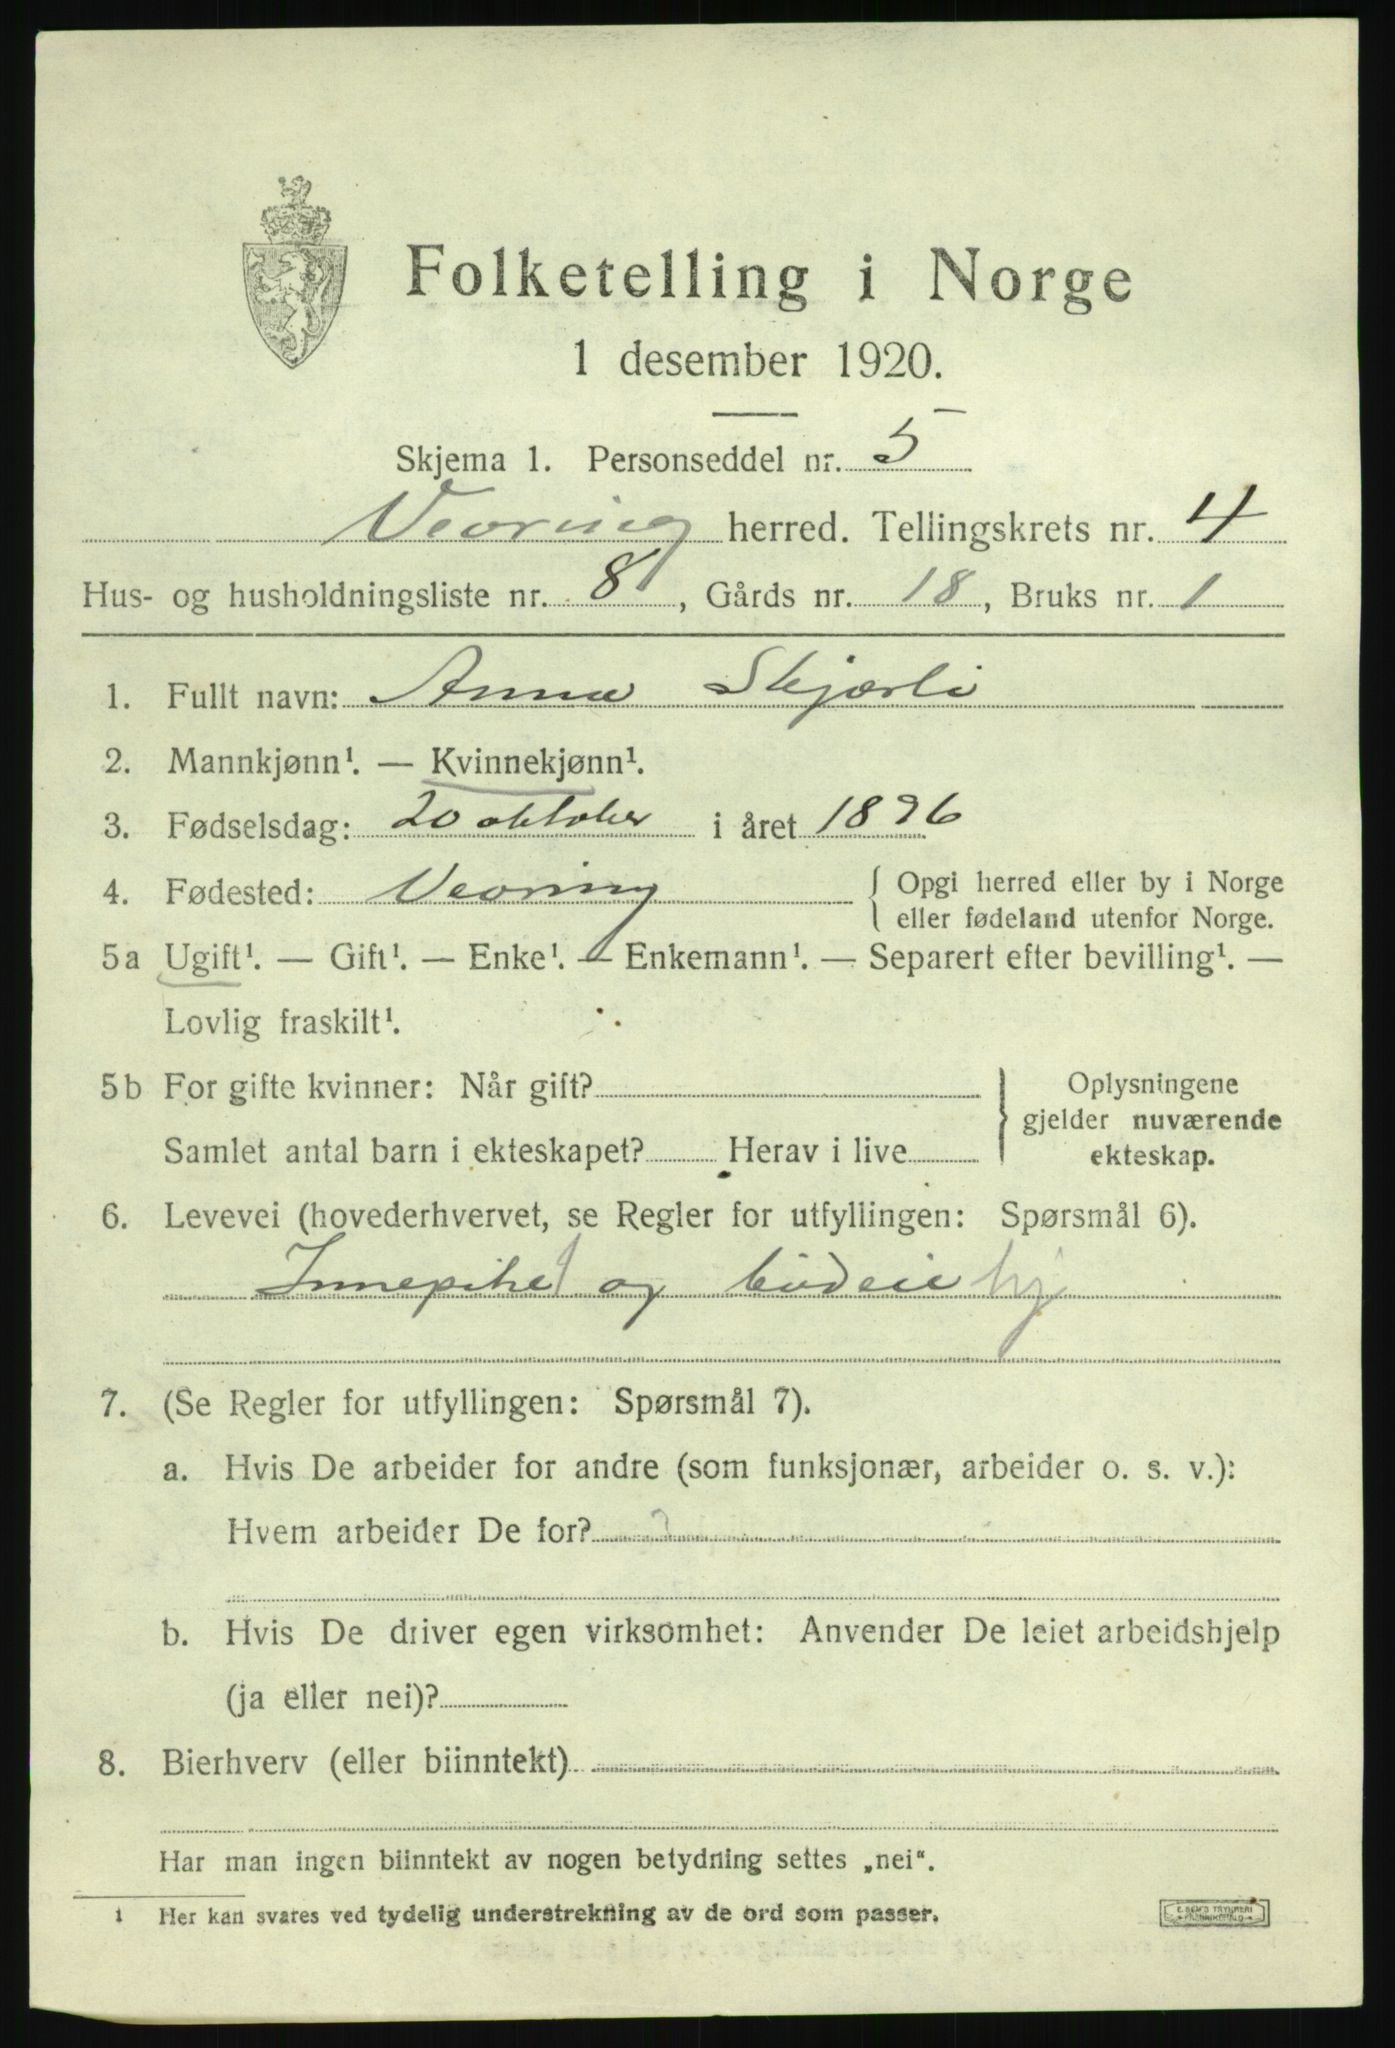 Folketelling i Norge
1 desember 1920.
Skjema 1. Personseddel nr. 5
Vevring herred. Tellingskrets nr. 4
Hus- og husholdningsliste nr. 8, Gårds nr. 18, Bruks nr. 1
1. Fullt navn: Anna Skjærli
2. Mannkjønn¹. — Kvinnekjønn¹.
3. Fødselsdag: 20 oktober i året 1896
4. Fødested: Vevring { Opgi herred eller by i Norge
eller fødeland utenfor Norge.
5a Ugift¹. — Gift¹. — Enke¹. — Enkemann¹. — Separert efter bevilling¹. —
Lovlig fraskilt¹.
5b For gifte kvinner: Når gift? } Oplysningene
gjelder nuværende
Samlet antal barn i ekteskapet? Herav i live
ekteskap.
6. Levevei (hovederhvervet, se Regler for utfyllingen: Spørsmål 6).
Innepike og budeie hj
7. (Se Regler for utfyllingen: Spørsmål 7).
a. Hvis De arbeider for andre (som funksjonær, arbeider o. s. v.):
Hvem arbeider De for? ?
b. Hvis De driver egen virksomhet: Anvender De leiet arbeidshjelp
(ja eller nei)?
8. Bierhverv (eller biinntekt)
Har man ingen biinntekt av nogen betydning settes „nei“.
1 Her kan svares ved tydelig understrekning av de ord som passer.